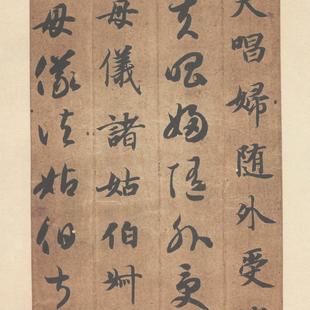 夫唱婦随外受
夫唱婦随外受
母儀諸姑伯叔
母儀諸姑伯叔